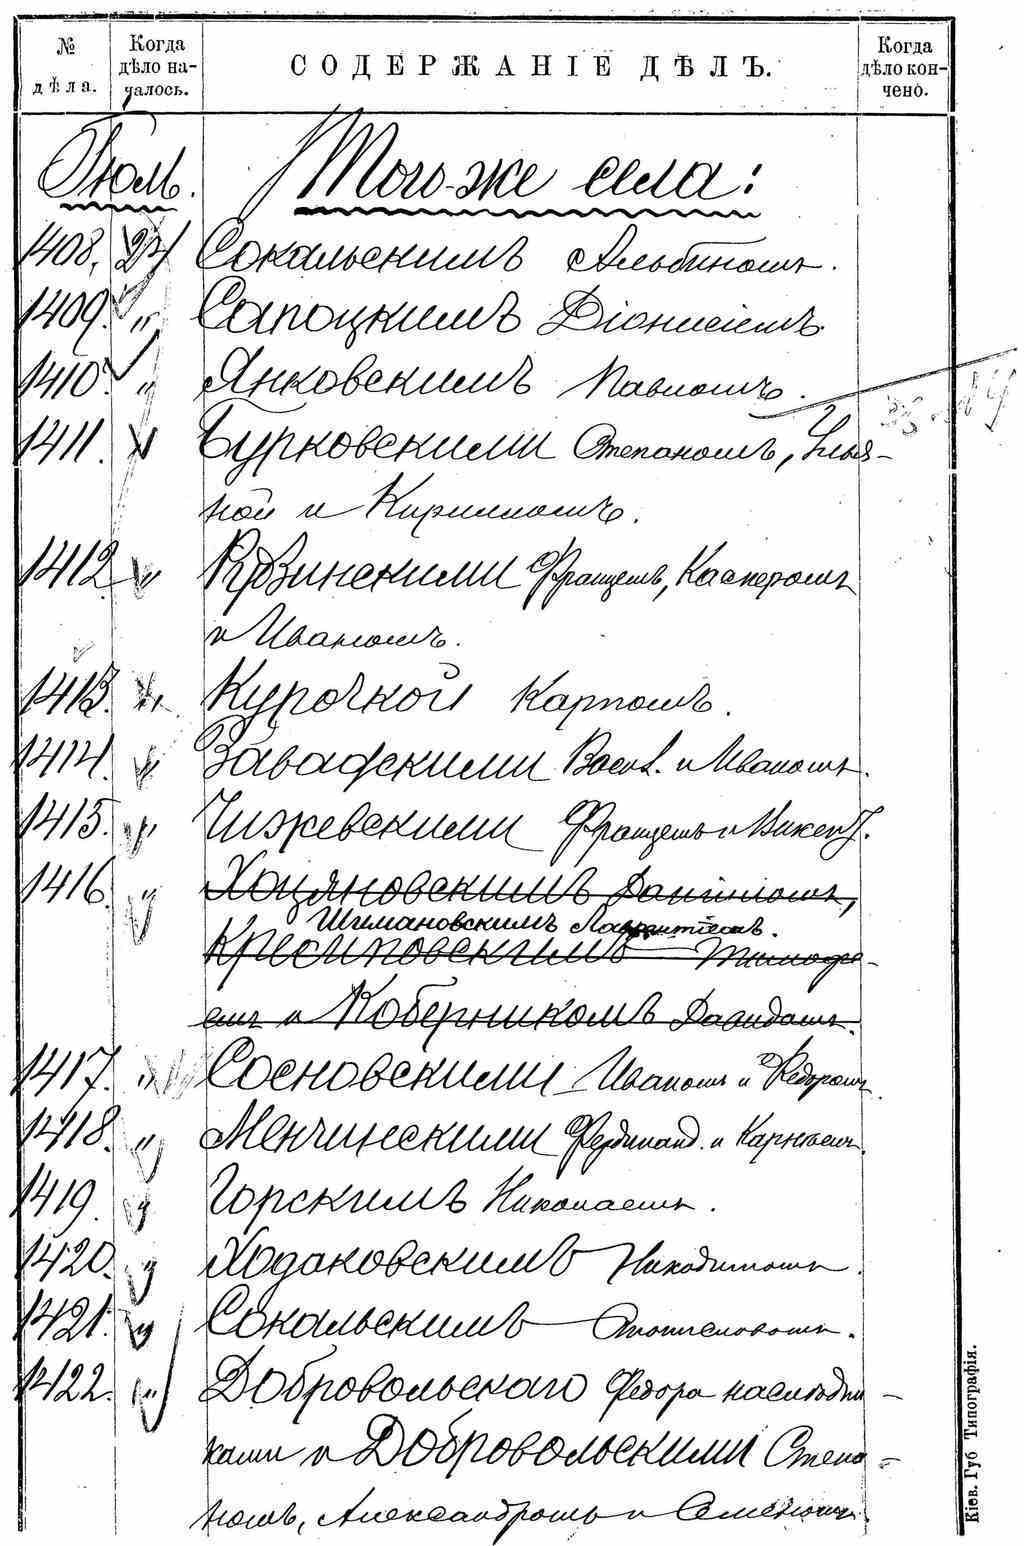 № дѣла. Когда дѣло началось. СОДЕРЖАНІЕ ДѢЛЪ. Когда дѣло кончено.
Іюль. Того-же села:
1408. 24 Сокальскимъ Альбиномъ.
1409. " Сапоцкимъ Діонисіемъ
1410 " Янковскимъ Павломъ.
1411. " Бурковскими Степаномъ, Улья-
ной и Кирилломъ.
1412 " Францемъ, Касперомъ
и Иваномъ.
1413. " Курочкой Карпомъ.
1414. " Завадскими Васил. и Иваномъ.
1415. " Чижевскими Францемъ и Викент.
1416 " Хоцяновскимъ Даніиломъ,
Шимановскимъ Лаврентіемъ.
Тимофе-
емъ и Коберникомъ Давидомъ.
1417. " Сосновскими Иваномъ и Федоромъ
1418. " Менчинскими Фердинанд. и Карнѣемъ.
1419. " Горскимъ Николаемъ.
1420. " Ходаковскимъ Никодимомъ.
1421. " Сокальскимъ Станиславомъ.
1422. " Добровольскаго Федора наслѣдни-
ками и Добровольскими Степа-
номъ, Александромъ и Семеномъ.
Кіев. Губ Типографія.